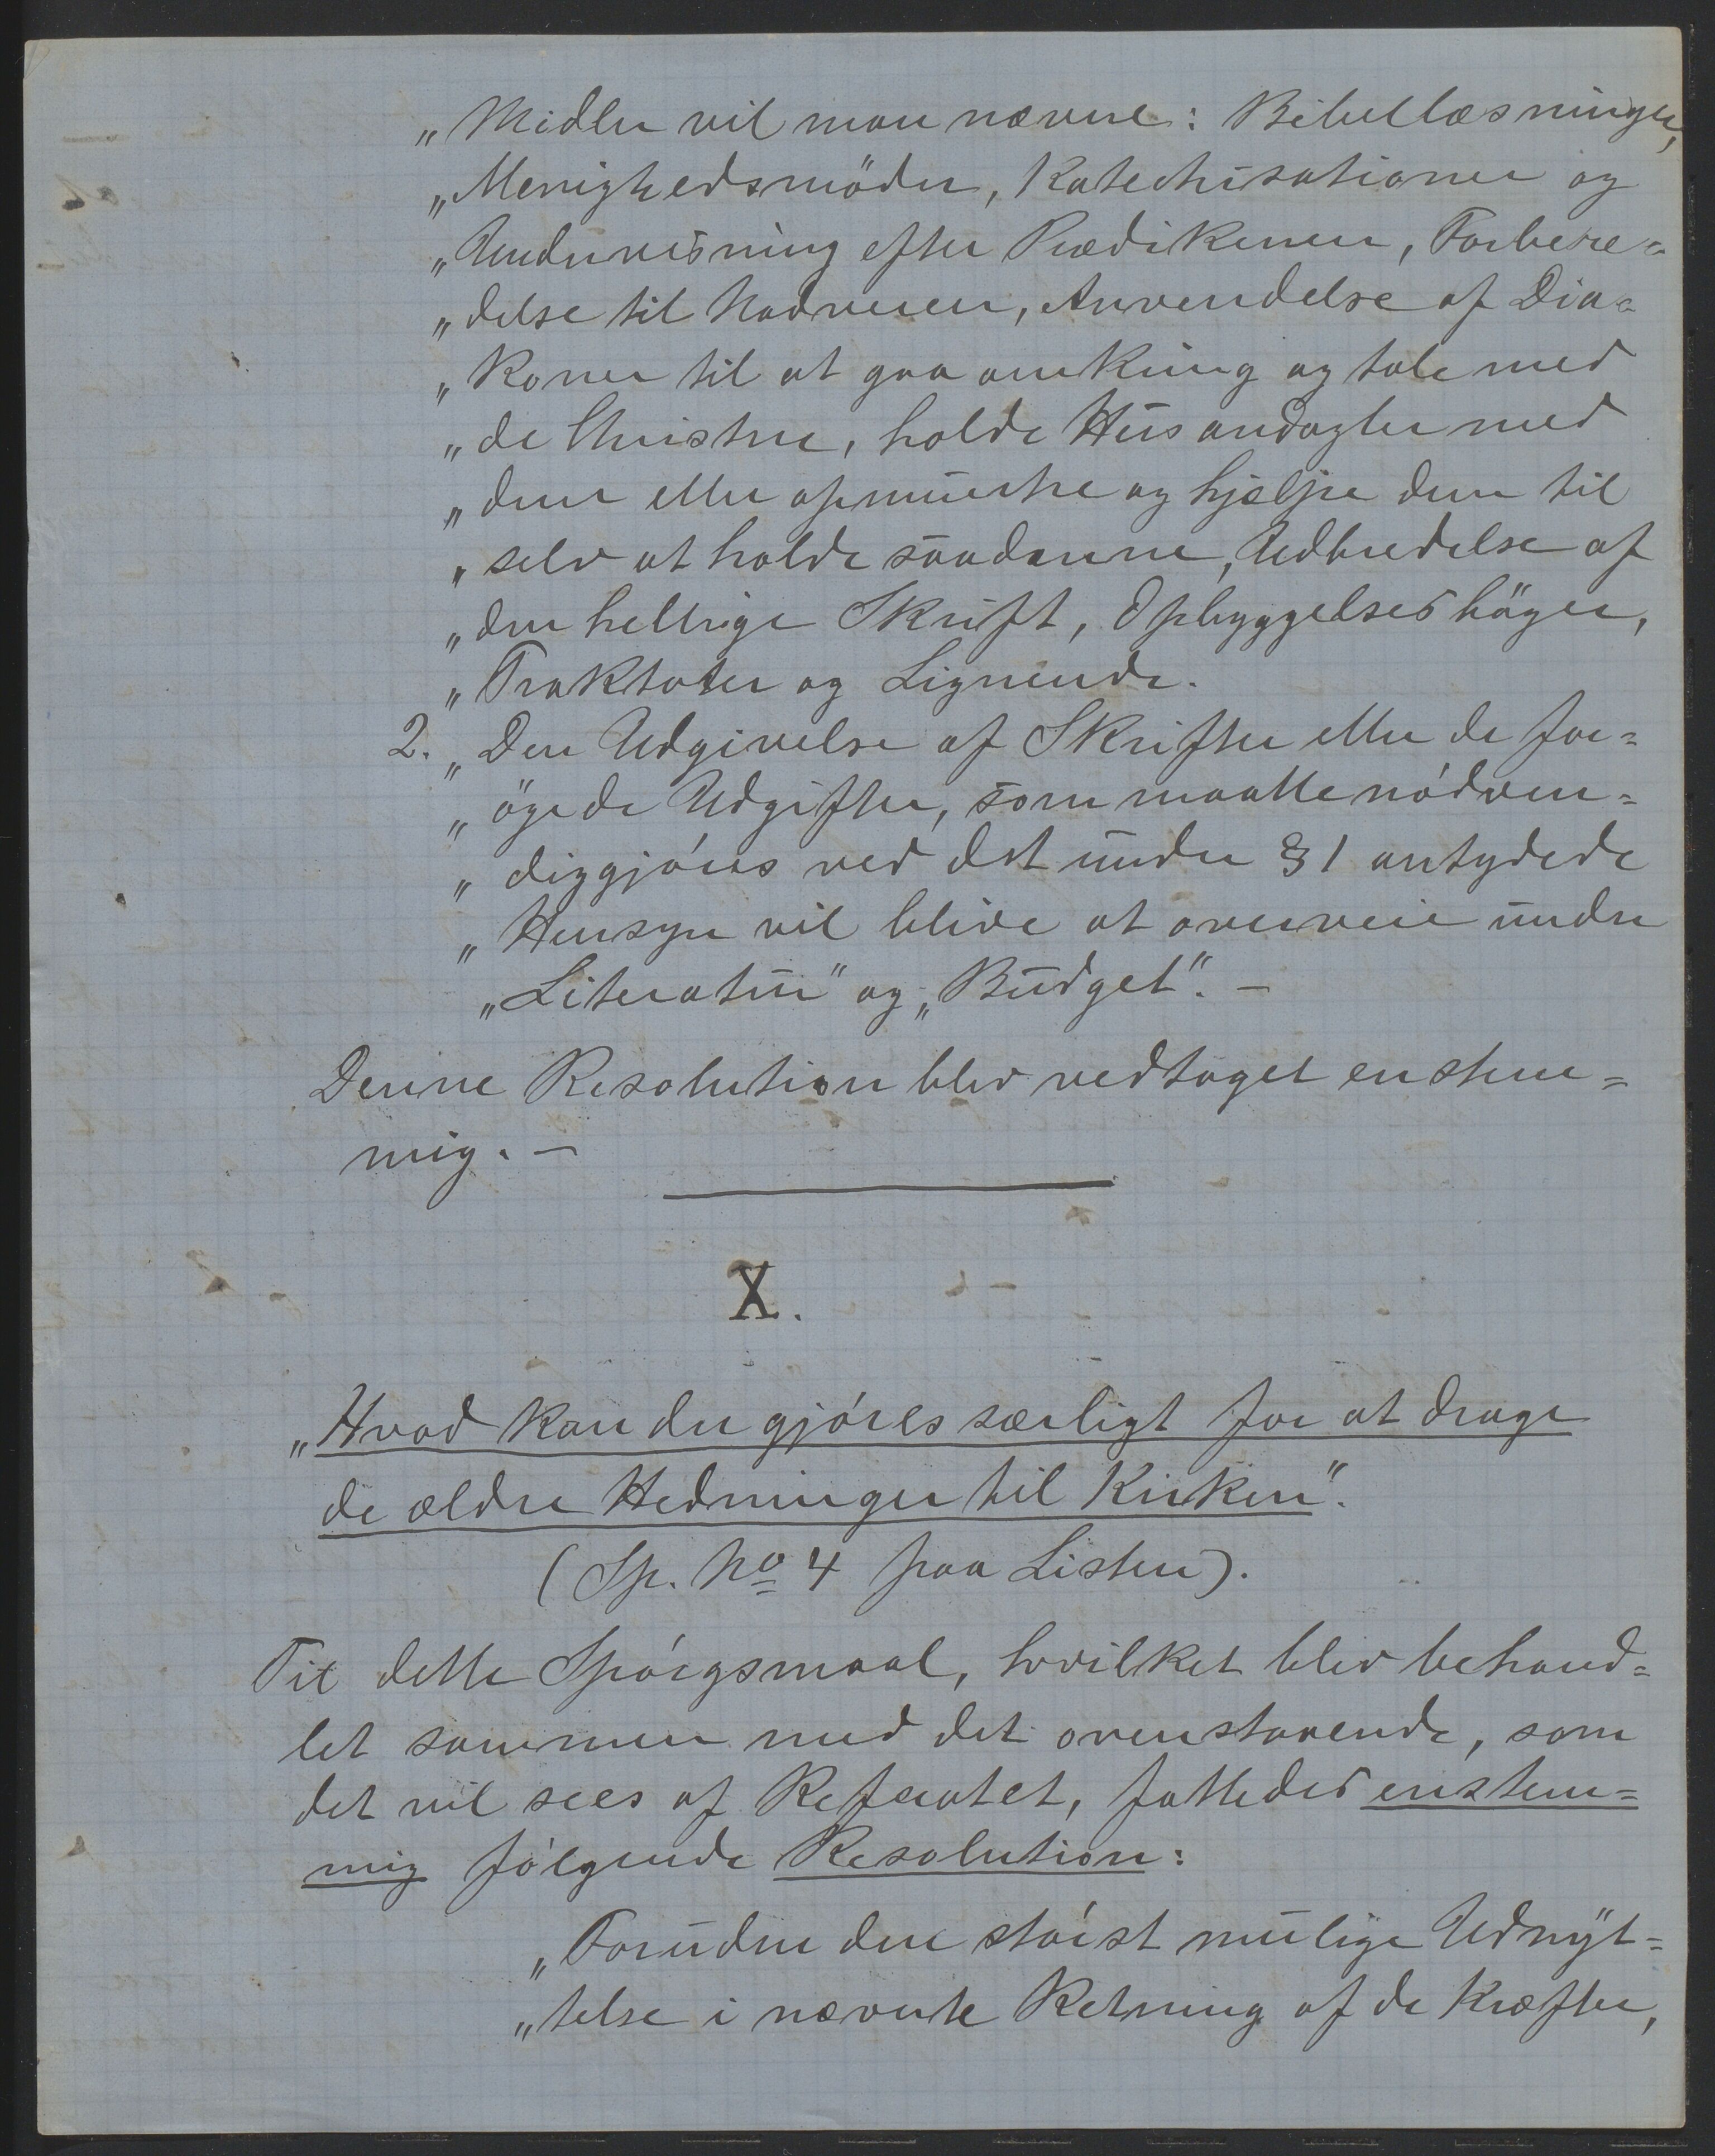 „Midler vil man nævne: Bibellæsninger,
„Menighedsmöder, Katechisationer og
„Undervisning efter Prædikenen, Forbere=
„delse til Nadveren, Anvendelse af Dia=
„koner til at gaa omkring og tale med
„de Christne, holde Husandagter med
„dem eller opmuntre og hjælpe dem til
„selv at holde saadanne, Udbredelse af
„den hellige Skrift, Opbyggelsesböger,
„Traktater og Lignende.
2. „Den Udgivelse af Skrifter eller de for=
„ögede Udgifter, som maatte nódven=
„diggjóres ved det under § 1 antydede
„Hensyn vil blive at overveie under
„Literatur" og „Budget". –
Denne Resolution blev vedtaget enstem=
mig. –
X.
„Hvad kan der gjóres særligt for at drage
de ældre Hedninger til Kirken".
(Sp. No 4 paa Listen).
Til dette Spórgsmaal, hvilket blev behand=
let sammen med det ovenstaaende, som
det vil sees af Referatet, fattedes enstem=
mig fólgende Resolution:
„Foruden den stórst mulige Udnyt=
„telse i nævnte Retning af de Kræfter,